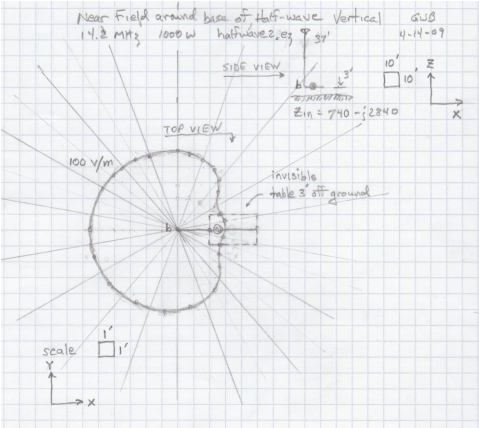 Near Field around base of Half-wave Vertical GWB
14.2 MHz 1000W halfwave2.ez 4-14-09
37'
SIDE VIEW
b
3'
10'
10'
Z
X
Zin = 740 - j2840
TOP VIEW
100 V/m
invisible
table 3' off ground
b
1'
scale
1'
Y
X